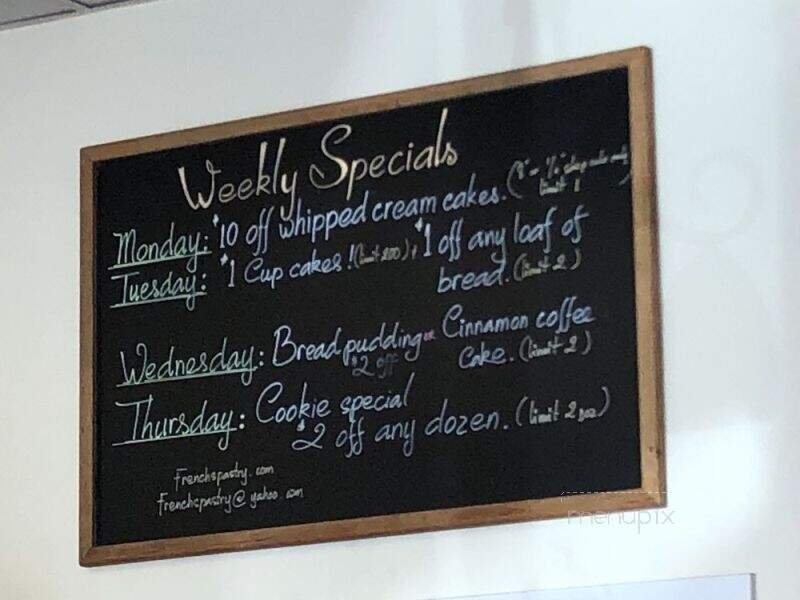 Weekly Specials
Monday: $10 off whipped cream cakes. (8" - only limit 1)
Tuesday: $1 Cup cakes! (limit 200), $1 off any loaf of
bread. (limit 2)
Wednesday: Bread pudding or Cinnamon coffee
$2 off cake. (limit 2)
Thursday: Cookie special
$2 off any dozen. (limit 2 doz)
Frenchspastry.com
Frenchspastry@yahoo.com
menupix